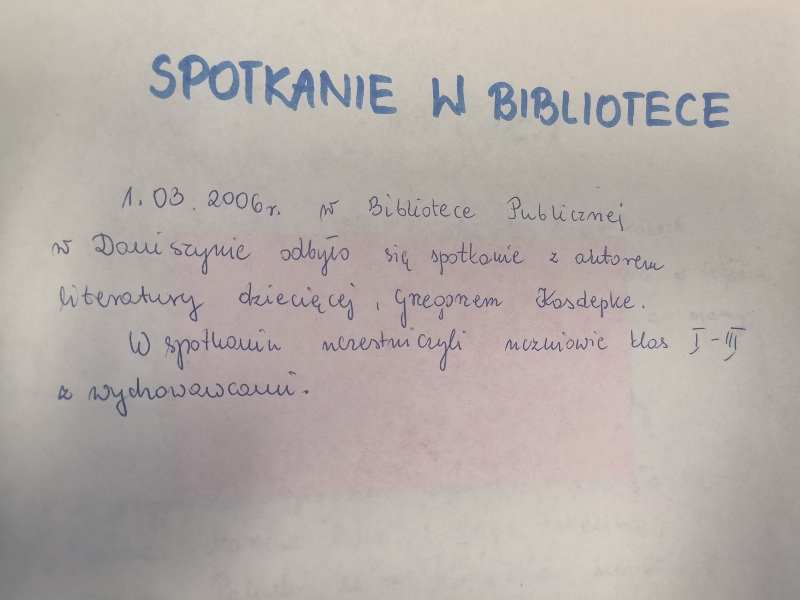 SPOTKANIE W BIBLIOTECE
1.03.2006r. w Bibliotece Publicznej
w Daniszynie odbyło się spotkanie z autorem
literatury dziecięcej, Gregorzem Kasdepke.
W spotkaniu uczestniczyli uczniowie klas I-III
z wychowawcami.